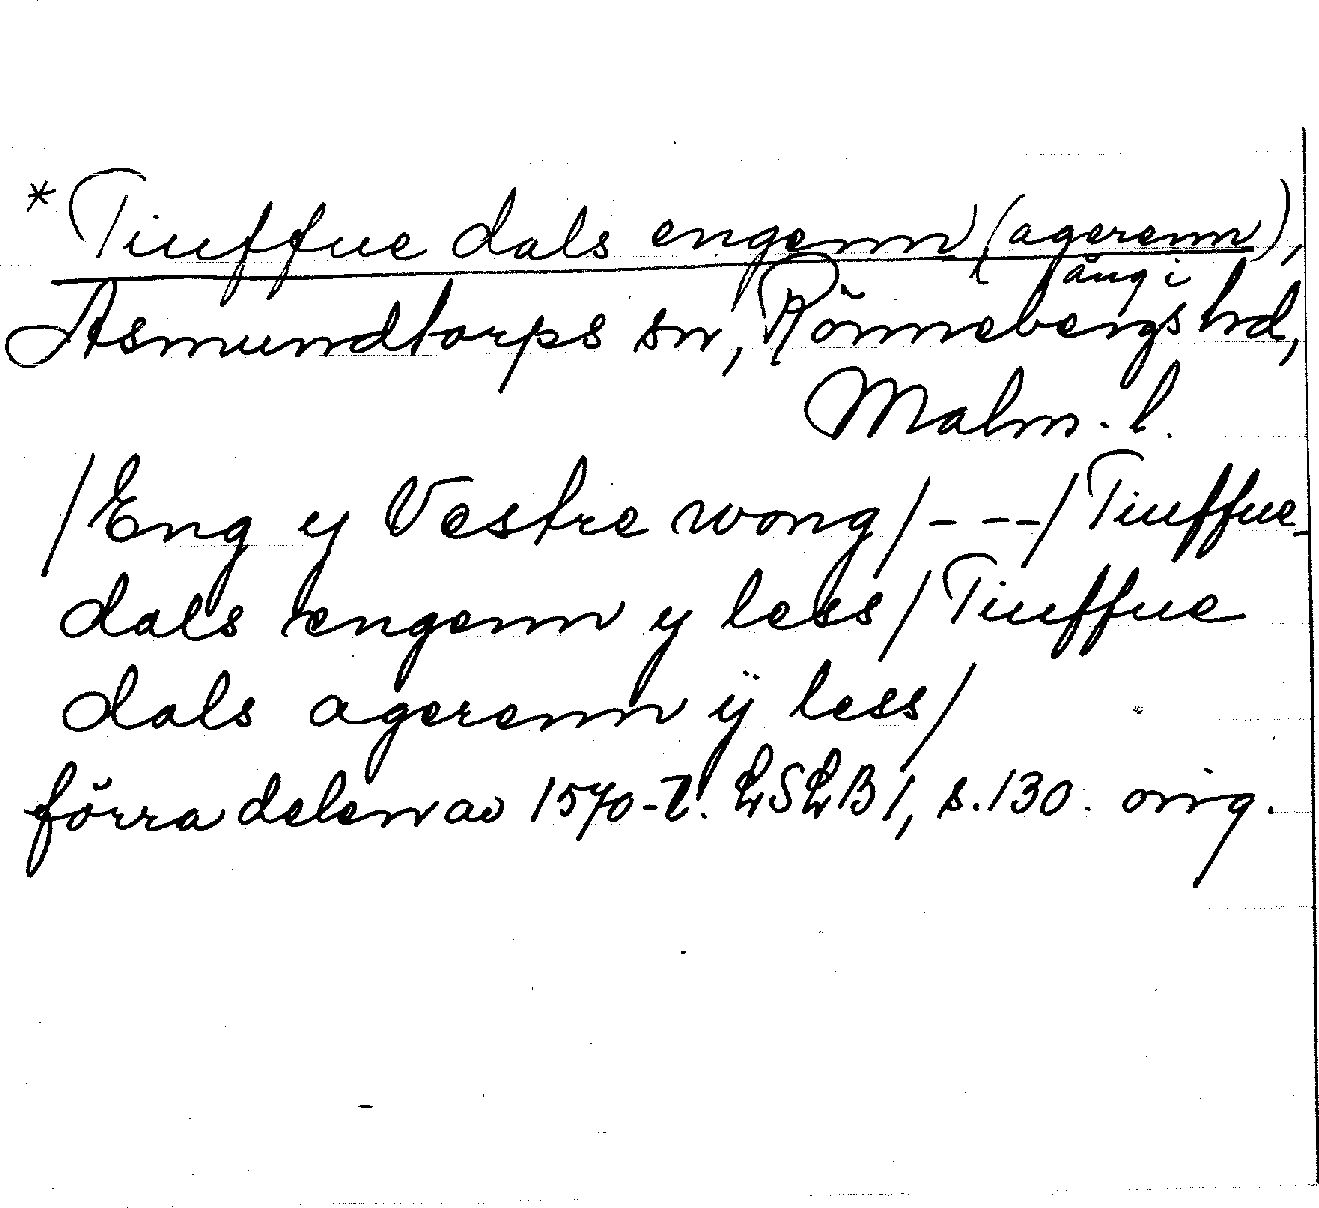 *Tiuffue dals engenn (agerenn),
äng i
Asmundtorps sn, Rönnebergs hd,
Malm. l.
/Eng y Vestre wong/---/Tiuffue-
dals engenn y less/Tiuffue
dals agerenn ÿ less/
förra delen av 1570-t. LSLB 1, s. 130. orig.